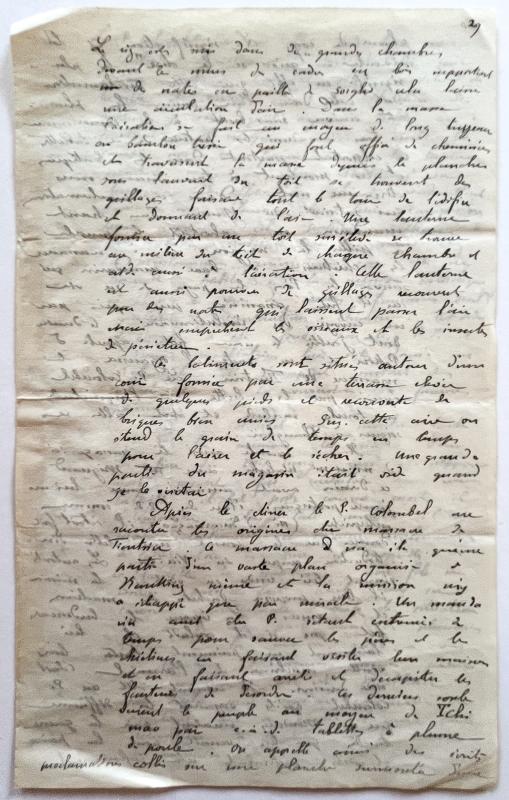 29
Le riz est mis dans de grandes chambres
devant le murs de cadres en bois supportant
de nates en paille de sorgho et la laisse
une circulation d'air. Dans la masse
l'aération se fait au moyen de long tuyaux
en bambou tressé qui font office de cheminées
et traversent la masse depuis le plancher
sous l'auvent du toit se trouvent des
grillages faisant tout le tour de l'édifice
et donnant de l'air. Une lanterne
formée par un toit surélevé se trouve
au milieu du toit de chaque chambre et
aide aussi à l'aération. Cette lanterne
est aussi pourvue de grillages recouvert
par des nates qui laissent passer l'air
mais empechent les oiseaux et les insectes
de pénétrer.
Ces batiments sont situés autour d'une
cour formée par une terrasse élevée
de quelques pieds et recouverte de
briques bien unies. Sur cette aire on
étend le grain de temps en temps
pour l'aérer et le sécher. Une grande
partie du magasin était vide quand
je le visitai
Après le diner le P. Colombel me
raconta les origines du massacre de
Tientsin. Ce massacre d
partie d'un vaste plan organisé à
Nanking même et la mission n'y
a échappé que par miracle. Un manda
rin ami du P.
temps pour sauver les pères et les
chrétiens en faisant veiller leur maison
et en faisant arrêter et décapiter les
fauteurs de désordre. Les derniers
le peuple au moyen de Tchi
mao par c.à.d. tablettes à plume
de poule. On appelle ainsi des écrits
proclamations collés sur une planche surmontée d'une